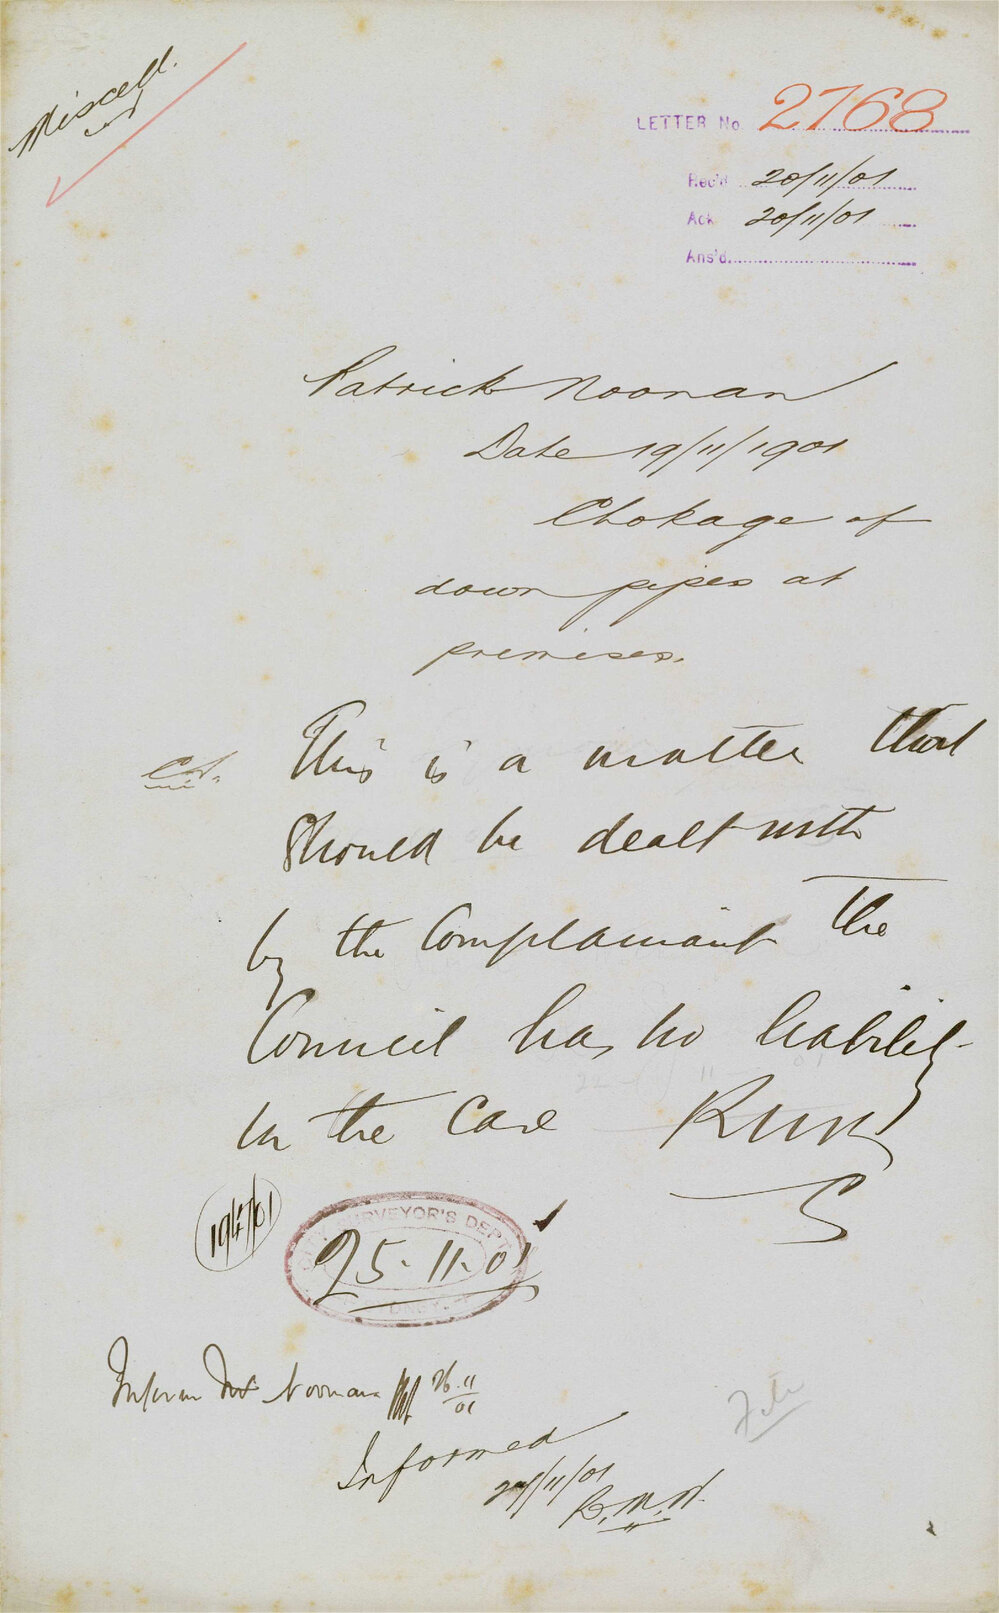 Miscell.
LETTER No 2768
Rec'd 20/11/01
Ack 20/11/01
Ans'd
Patrick Noonan
Date 19/11/1901
Chokage of
down pipes at
premises.
This is a matter that
Should be dealt with
by the Complainant The
Council has no liability
in the Case
1947/01
SURVEYOR'S DEPT
25.11.01
Inform Mr Noonan 26.11/01
Informed
27/11/01
File